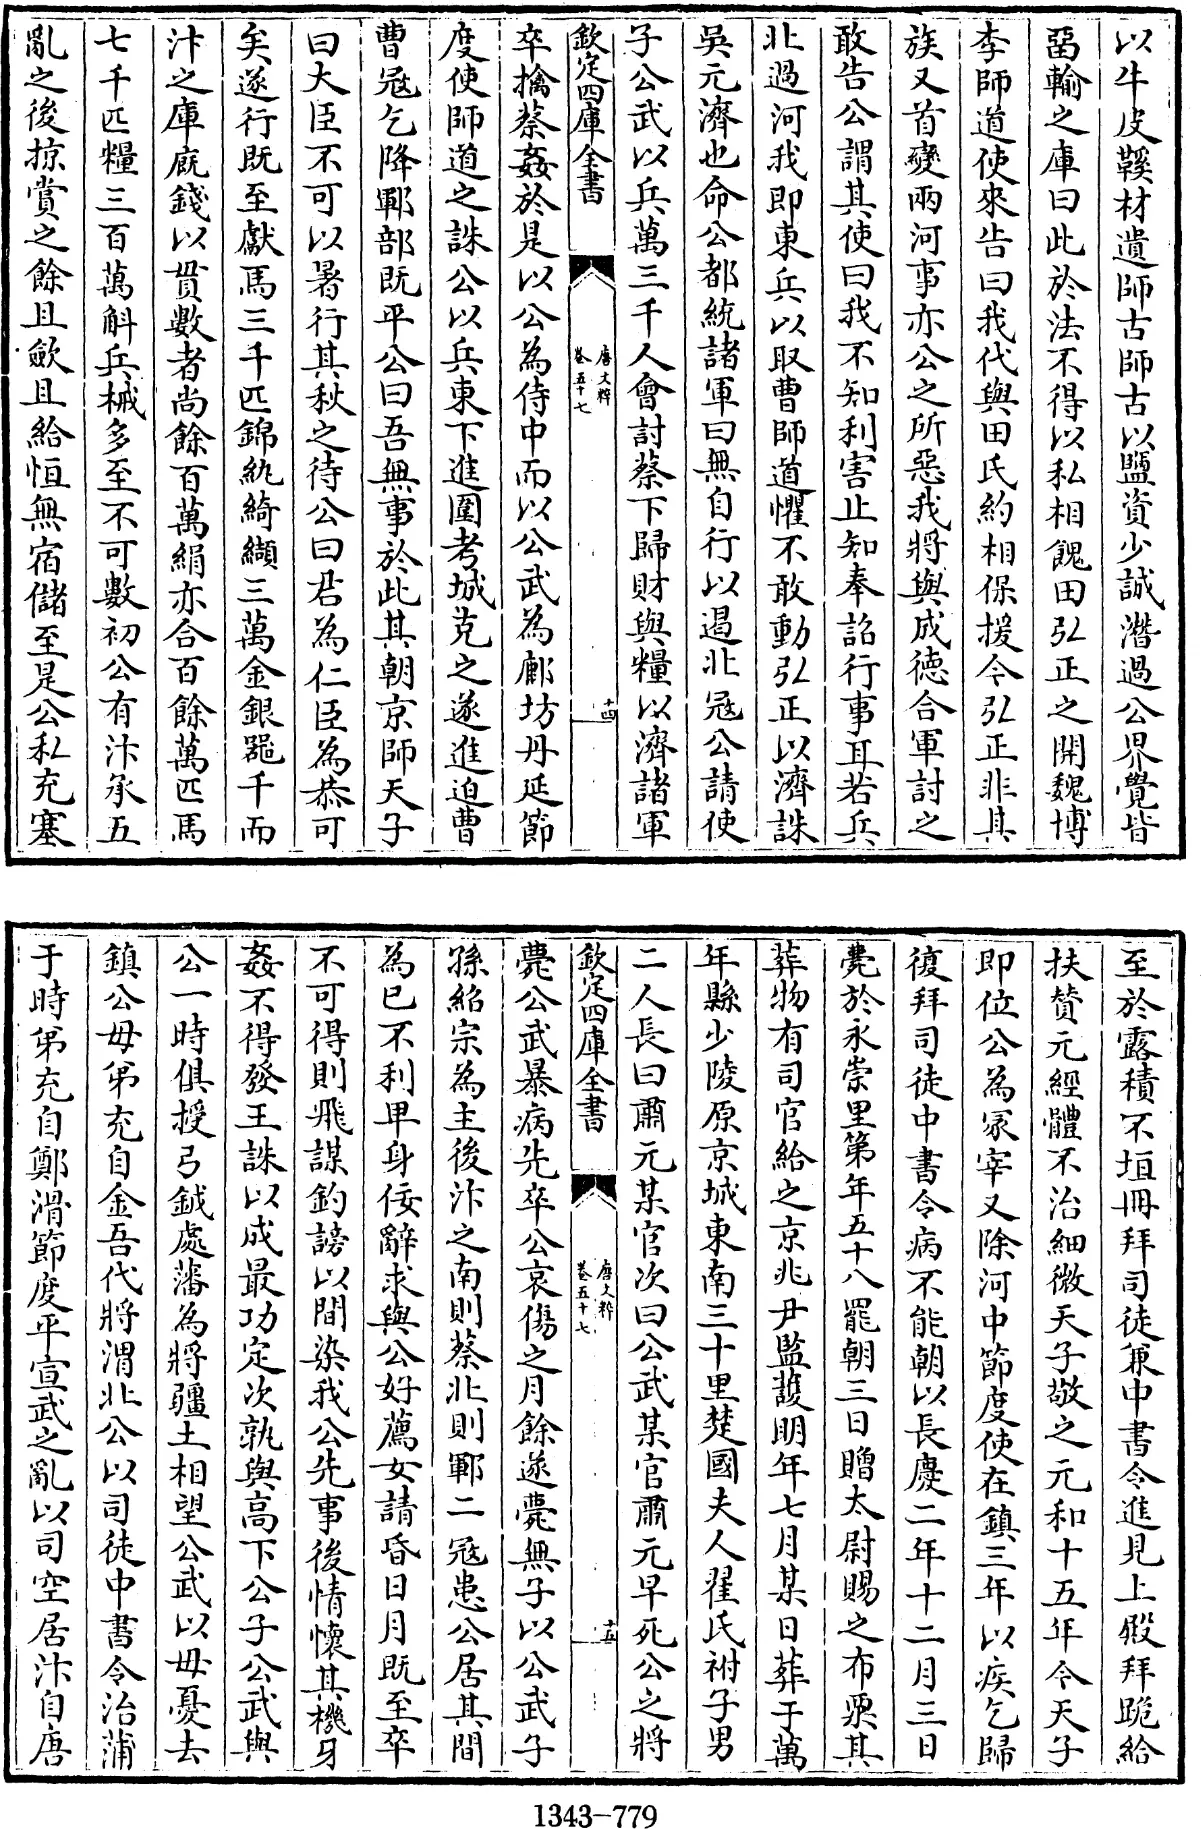 以牛皮鞵材遺師古師古以鹽資少誠潛過公界覺皆
留輸之庫曰此於法不得以私相餽田弘正之開魏博
李師道使來告曰我代與田氏約相保援今弘正非其
族又首變兩河事亦公之所惡我將與成德合軍討之
敢告公謂其使曰我不知利害止知奉詔行事耳若兵
北過河我即東兵以取曹師道懼不敢動弘正以濟誅
吳元濟也命公都統諸軍曰無自行以遏北冦公請使
子公武以兵萬三千人會討蔡下歸財與糧以濟諸軍
欽定四庫全書
唐文粹
卷五十七
十四
卒擒蔡姦於是以公為侍中而以公武為鄜坊丹延節
度使師道之誅公以兵東下進圍考城克之遂進迫曹
曹冦乞降鄆部既平公曰吾無事於此其朝京師天子
曰大臣不可以暑行其秋之待公曰君為仁臣為恭可
矣遂行既至獻馬三千匹錦紈綺纈三萬金銀噐千而
汴之庫廐錢以貫數者尚餘百萬絹亦合百餘萬匹馬
七千匹糧三百萬斛兵械多至不可數初公有汴承五
亂之後掠賞之餘且歛且給恒無宿儲至是公私充塞
至於露積不垣冊拜司徒兼中書令進見上殿拜跪給
扶贊元經體不治細微天子敬之元和十五年今天子
即位公為冢宰又除河中節度使在鎮三年以疾乞歸
復拜司徒中書令病不能朝以長慶二年十二月三日
薨於永崇里第年五十八罷朝三日贈太尉賜之布粟其
葬物有司官給之京兆尹監護明年七月某日葬于萬
年縣少陵原京城東南三十里楚國夫人翟氏祔子男
二人長曰肅元某官次曰公武某官肅元早死公之將
欽定四庫全書
唐文粹
卷五十七
十五
薨公武暴病先卒公哀傷之月餘遂薨無子以公武子
孫紹宗為主後汴之南則蔡北則鄆二冦患公居其間
為已不利甲身佞辭求與公好薦女請昏日月既至卒
不可得則飛謀釣謗以間染我公先事後情懷其機牙
姦不得發王誅以成最功定次孰與高下公子公武與
公一時俱授弓鉞處藩為將疆土相望公武以母憂去
鎮公母弟充自金吾代將渭北公以司徒中書令治蒲
于時弟充自鄭滑節度平宣武之亂以司空居汴自唐
1343-779